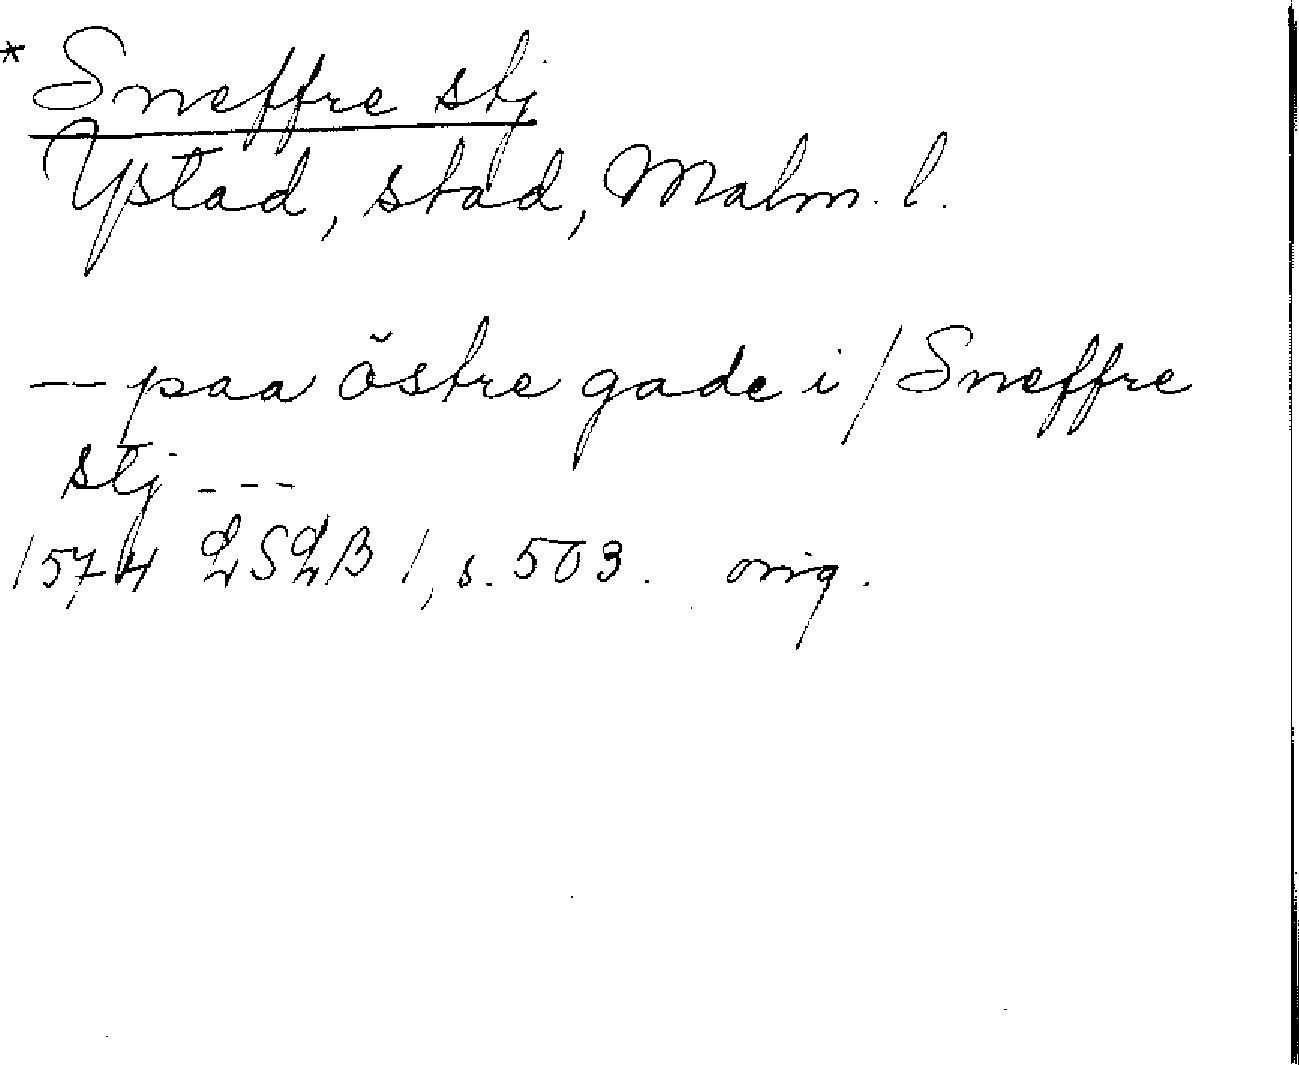 * Sneffre stj
Ystad, stad, Malm. l.
-- paa östre gade i / Sneffre
stj ---
1574 LSLB 1, s. 503. orig.